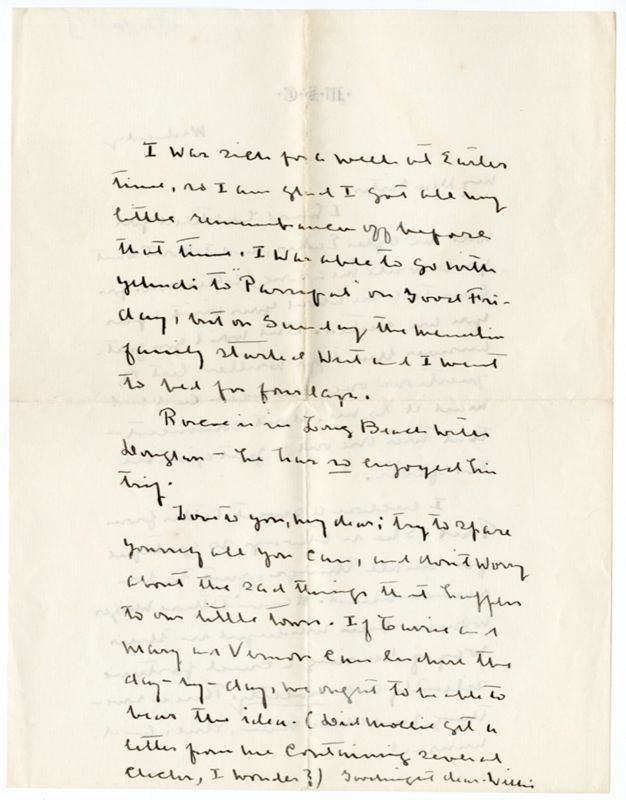 I was sick for a week at Easter
time, so I am glad I got all my
little remembrances off before
that time. I was able to go with
Yehudi to "Parsifal" on Good Fri-
day, but on Sunday the Menuhin
family started West and I went
to bed for four days.
Roscoe is in Long Beach with
Douglass - he has so enjoyed his
trip.
Love to you, my dear; try to spare
yourself all you can, and don't worry
about the sad things that happen
to our little town. If Carrie and
Mary and Vernon can endure the
day-by-day, we ought to be able to
bear the idea. (Did Mollie get a
letter from me containing several
checks, I wonder?) Goodnight dear. Willie